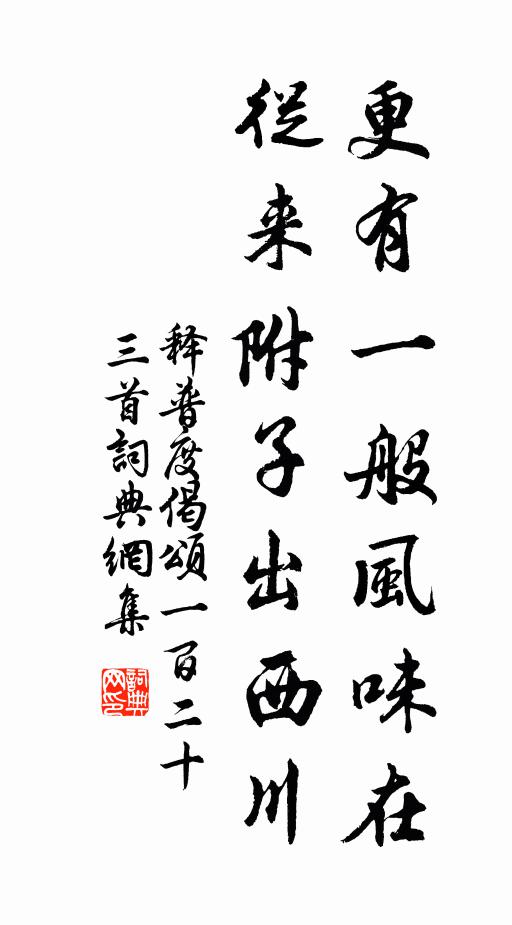 更有一般風味在
從来附子出西川
释普度偈頌一百二十
三首詞典網集
詞典
网印